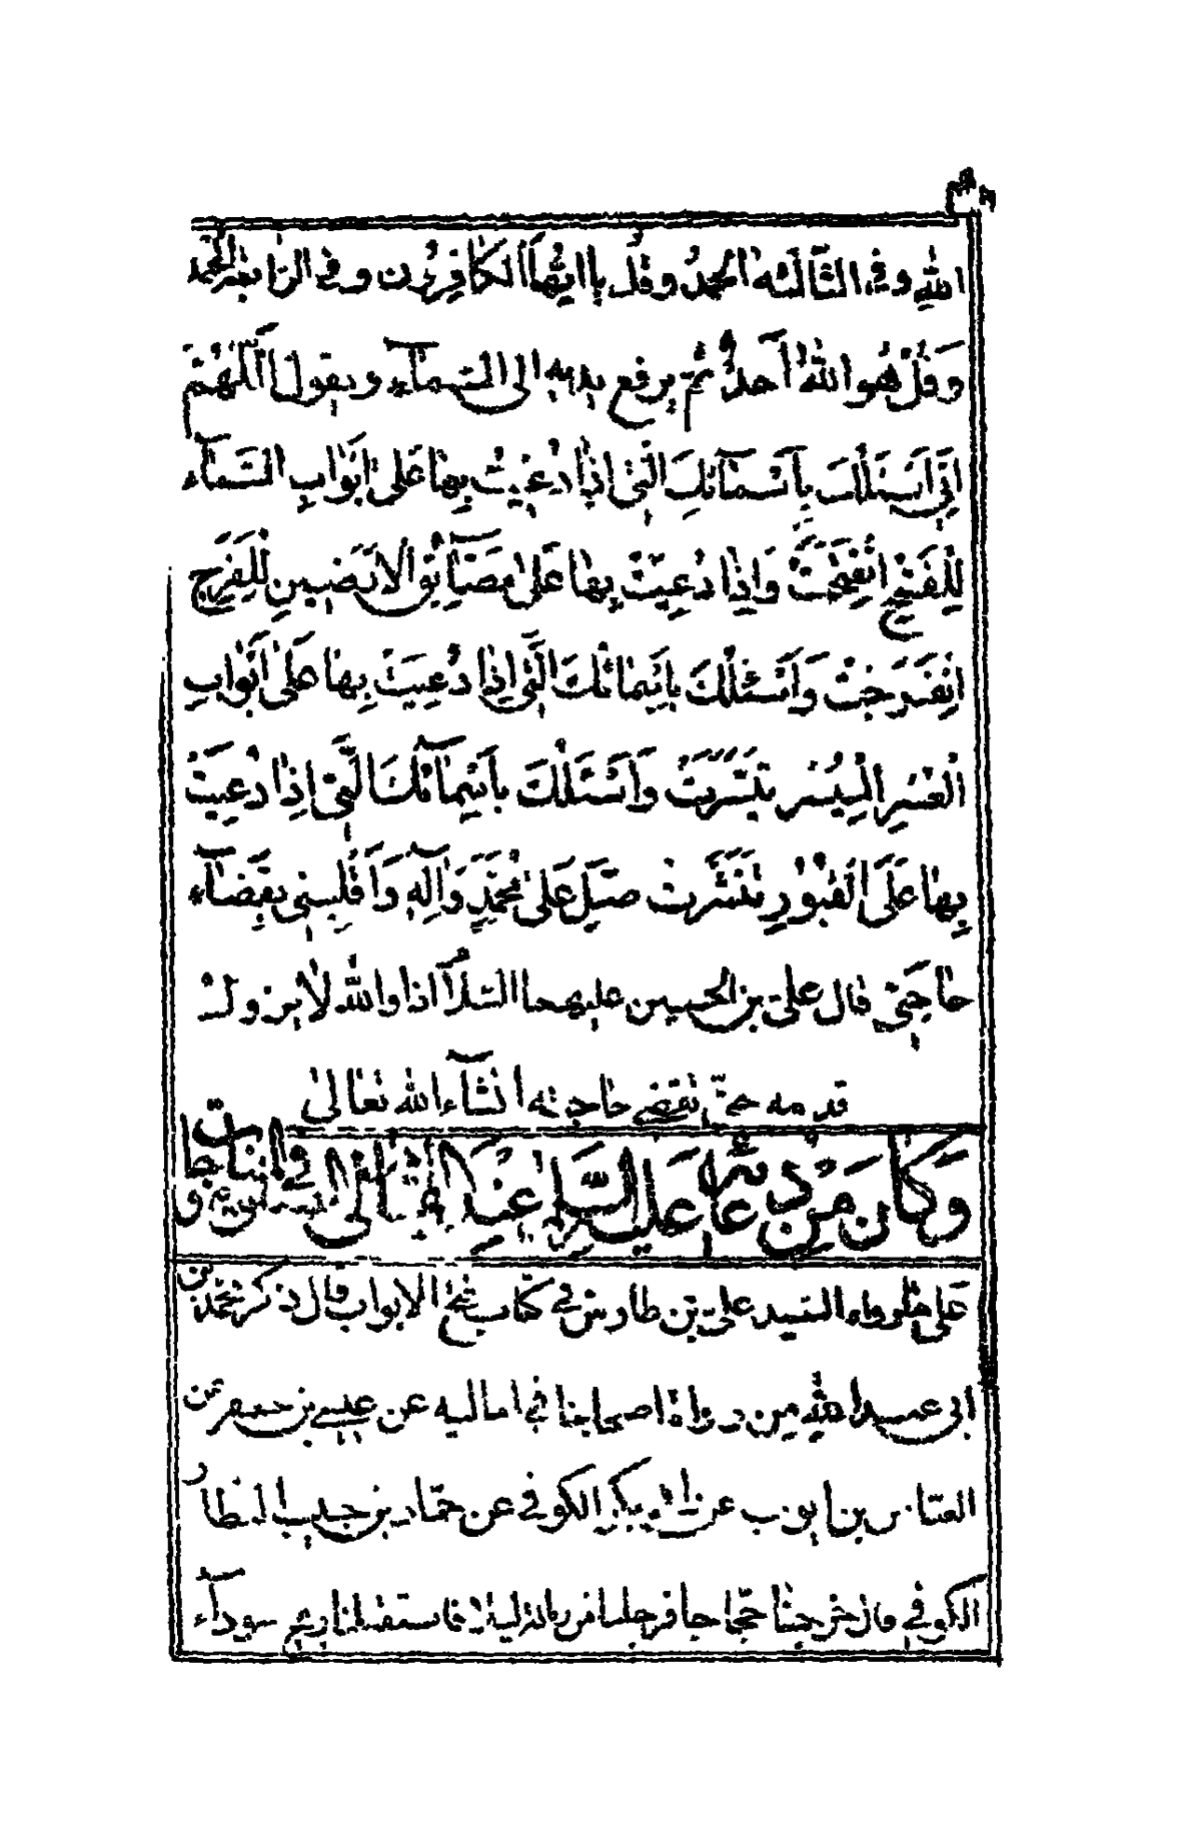 اللهِ وفي الثّالثه الحمدُ وقُل يا ايُّها الكافِرُون وفي الرّابعه الحمد
وَقُلْ هُوَ اللهُ اَحدٌ ثُمّ يرفع يديه الى السّماۤء ويقول اَللّهُمَّ
اِنّى اَسْئَلُكَ بِاَسْمآئكَ الَّتى اِذا دُعِيتْ بِها عَلى اَبْوابِ السَّمآء
لِلْفَتْحِ انْفَتَحَتْ وَاِذا دُعِيَتْ بِها عَلى مَصَآئِقِ الْاَرَضينِ لِلْفَرَجِ
انْفَرَجَتْ وَاَسْئَلُكَ بِاَسْمائكَ الَّتى اِذا دُعِيَتْ بِها عَلى اَبْوابِ
الْعُسْرِ لِلْيُسْرِ تَيَسَّرَتْ وَاَسْئَلُكَ بِاَسْمآئكَ الَّتى اِذا دُعِيَتْ
بِها عَلَى الْقُبُورِ تَنَشَّرَتْ صَلِّ عَلى مُحَمَّدٍ وَآلِهِ وَاَقْلِبْنى بِقَضآء
حاجَتى قال علىّ بن الحسين عليهما السّلام اذا والله لا يزول
قدمه حتّى تقضى حاجته انشآء الله تعالى
وَكانَ مِنْ دُعائه عَلَيهِ السَّلام عِنْدَ
على ما رواه السّيد علىّ بن طاوس في كتاب فتح الابواب قال ذكر محمّد بن
ابى عبد الله من رواة اصحابنا في اماليه عن عيسى بن جعفر عن
العبّاس بن ايّوب عن ابى بكر الكوفي عن حمّاد بن حبيب العطار
الكوفي قال خرجنا حجّاجا فرحلنا من زبالة ليلا فاستقبلتنا ريح سودآء